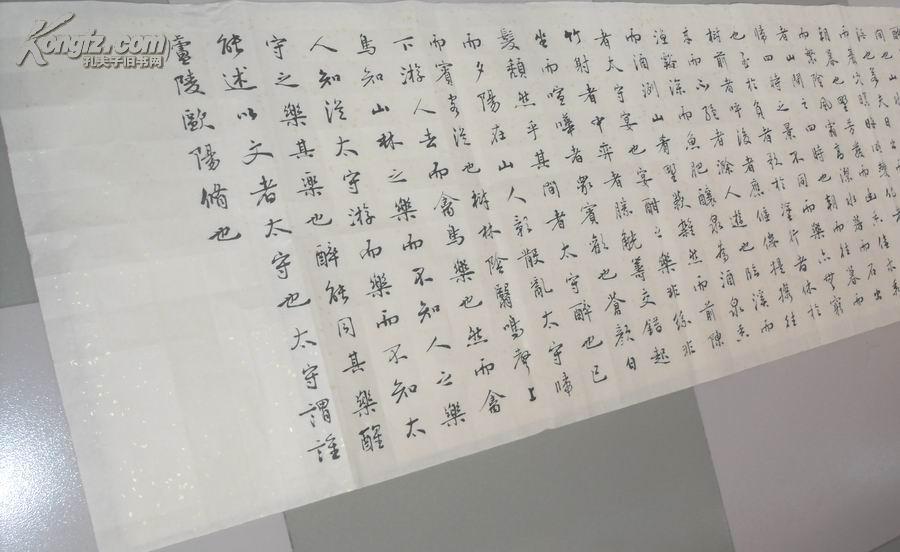 而繁陰風霜高潔水落而石出
者山間之四時也朝而往暮而
歸四時之景不同而樂亦無窮
也至於負者歌於塗行者休於
樹前者呼後者應傴僂提攜往
来而不絕者滁人遊也臨溪而
漁溪深而魚肥釀泉為酒泉香
而酒洌山肴野蔌雜然而前陳
者太守宴也宴酣之樂非絲非
竹射者中弈者勝觥籌交錯起
坐而喧嘩者衆賓歡也蒼顏白
髮頹然乎其間者太守醉也已
而夕陽在山人影散亂太守歸
而賓客從也樹林陰翳鳴聲上
下游人去而禽鳥樂也然而禽
鳥知山林之樂而不知人之樂
人知從太守游而樂而不知太
守之樂其樂也醉能同其樂醒
能述以文者太守也太守謂誰
廬陵歐陽脩也
Kongfz.com
孔夫子旧书网